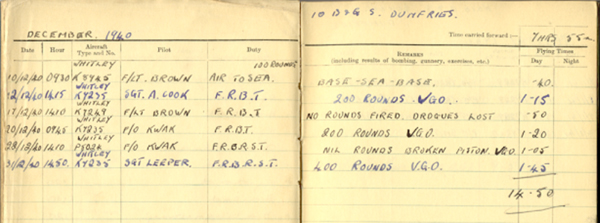 DECEMBER. 1940
Date Hour Aircraft Type and No. Pilot Duty
WHITLEY 100 ROUNDS
10/12/40 0930 K8945 F/LT. BROWN AIR TO SEA.
WHITLEY
12/12/40 1415 K7235 SGT. A. COOK F.R.B.T.
WHITLEY
17/12/40 1410 K7249 F/LT BROWN F.R.B.T
WHITLEY
20/12/40 0945 K7235 P/O KWAK F.R.BT.
WHITLEY
28/12/40 1410 P/O KWAK F.R.B.R.S.T.
WHITLEY
31/12/40 1450. K7235 SGT LEEPER. F.R.B.R.S.T.
10 B&G S. DUMFRIES.
Time carried forward:—
7 HRS 55
REMARKS
(including results of bombing, gunnery, exercises, etc.)
Flying Times
Day Night
BASE - SEA - BASE. -40
200 ROUNDS VGO. 1-15
NO ROUNDS FIRED. DROGUES LOST -50
200 ROUNDS VGO. 1-20
NIL ROUNDS BROKEN PISTON. VGO. 1-05
400 ROUNDS V.G.O. 1-45
14-50